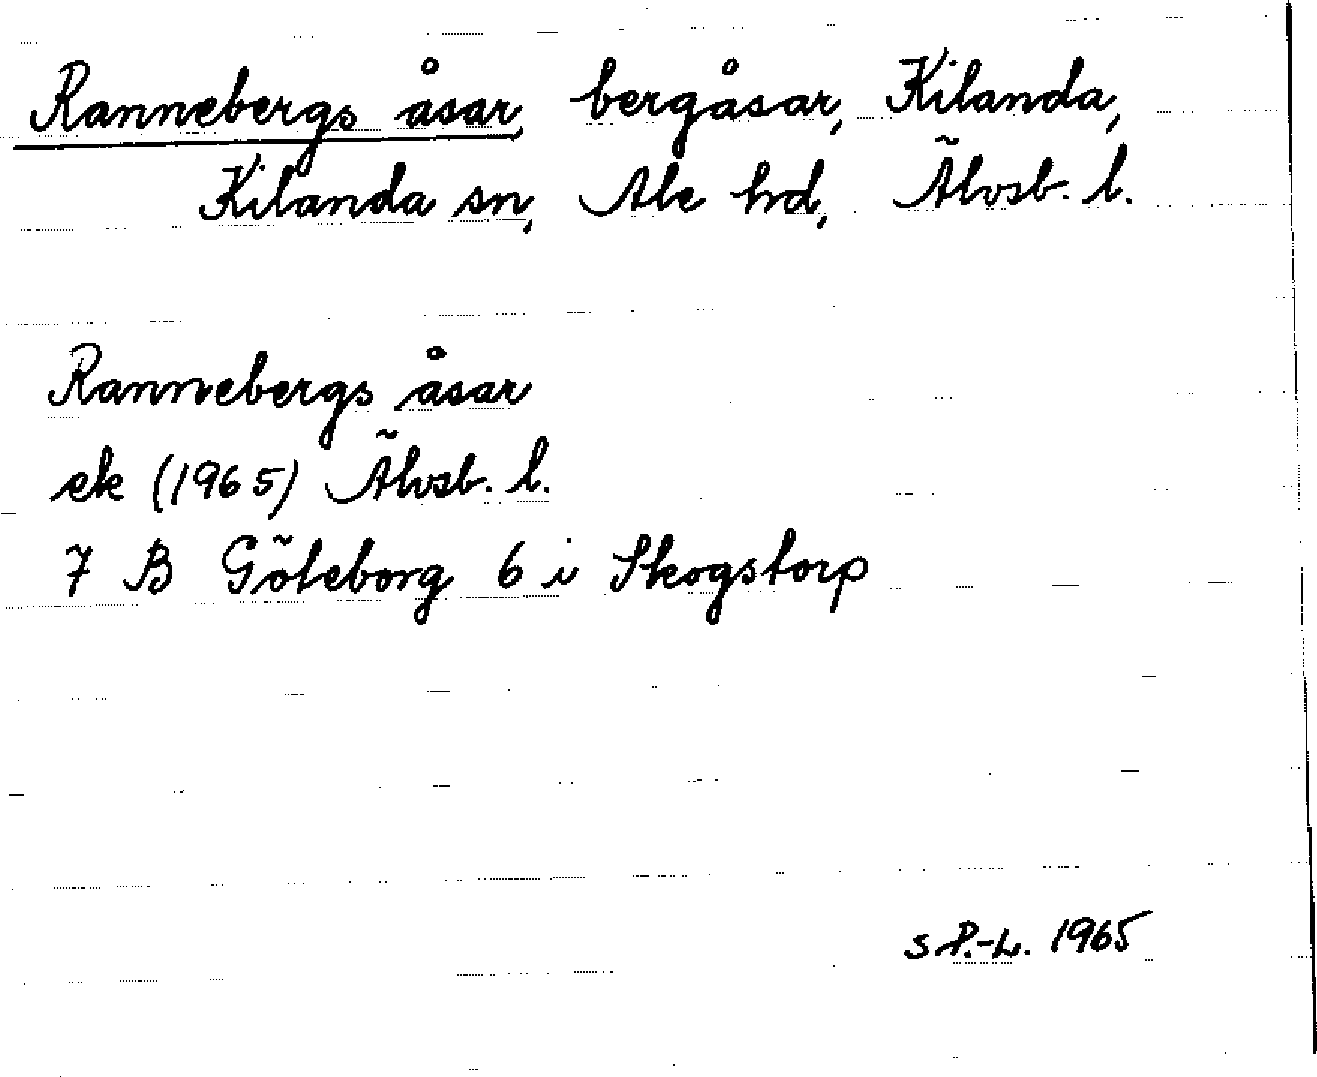 Rannebergs åsar, bergåsar, Kilanda,
Kilanda sn, Ale hd, Älvsb. l.
Rannebergs åsar
ek (1965) Älvsb. l.
7 B Göteborg 6 i Skogstorp
S P.-L. 1965